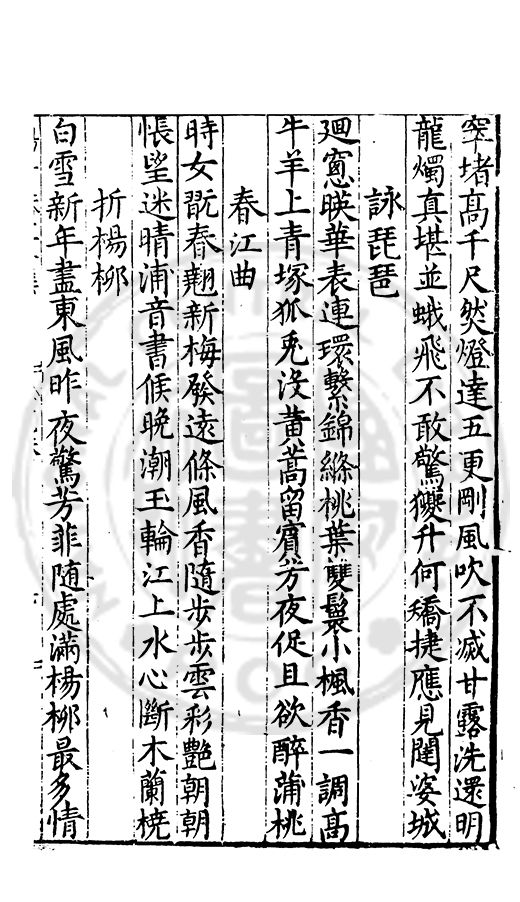 窣堵高千尺然燈達五更剛風吹不滅甘露洗還明
龍燭真堪並蛾飛不敢驚玃升何矯捷應見闥婆城
詠琵琶
廻窻暎華表連環繫錦絛桃葉雙鬟小楓香一調高
牛羊上青塚狐兎没黄蒿留賓芳夜促且欲醉蒲桃
春江曲
時女翫春翹新梅發遠條風香隨步步雲彩艷朝朝
悵望迷晴浦音書候晚潮玉輪江上水心斷木蘭橈
折楊柳
白雪新年盡東風昨夜驚芳菲随處滿楊柳最多情